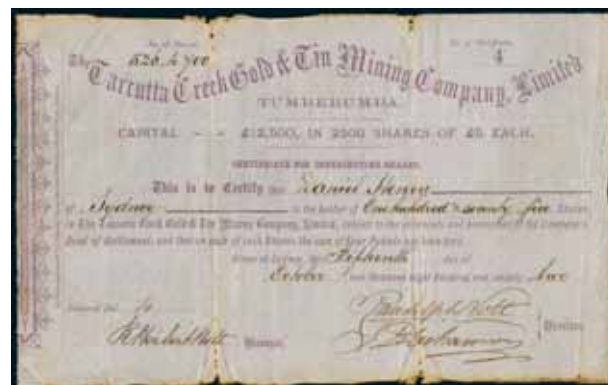 No. of Shares
526 to 700
No. of Certificate
4
The Tarcutta Creek Gold & Tin Mining Company, Limited
TUMBERUMBA.
CAPITAL - - £12,500, IN 2500 SHARES OF £5 EACH.
CERTIFICATE FOR CONTRIBUTING SHARES.
This is to Certify that Daniel
of Sydney is the holder of One hundred & seventy five Shares
in The Tarcutta Creek Gold & Tin Mining Company, Limited, subject to the
Deed of Settlement, and that on each of such Shares the sum of Four Pounds has been paid.
Given at Sydney, this day of
October one thousand eight hundred and seventy two
Manager.
Directors.